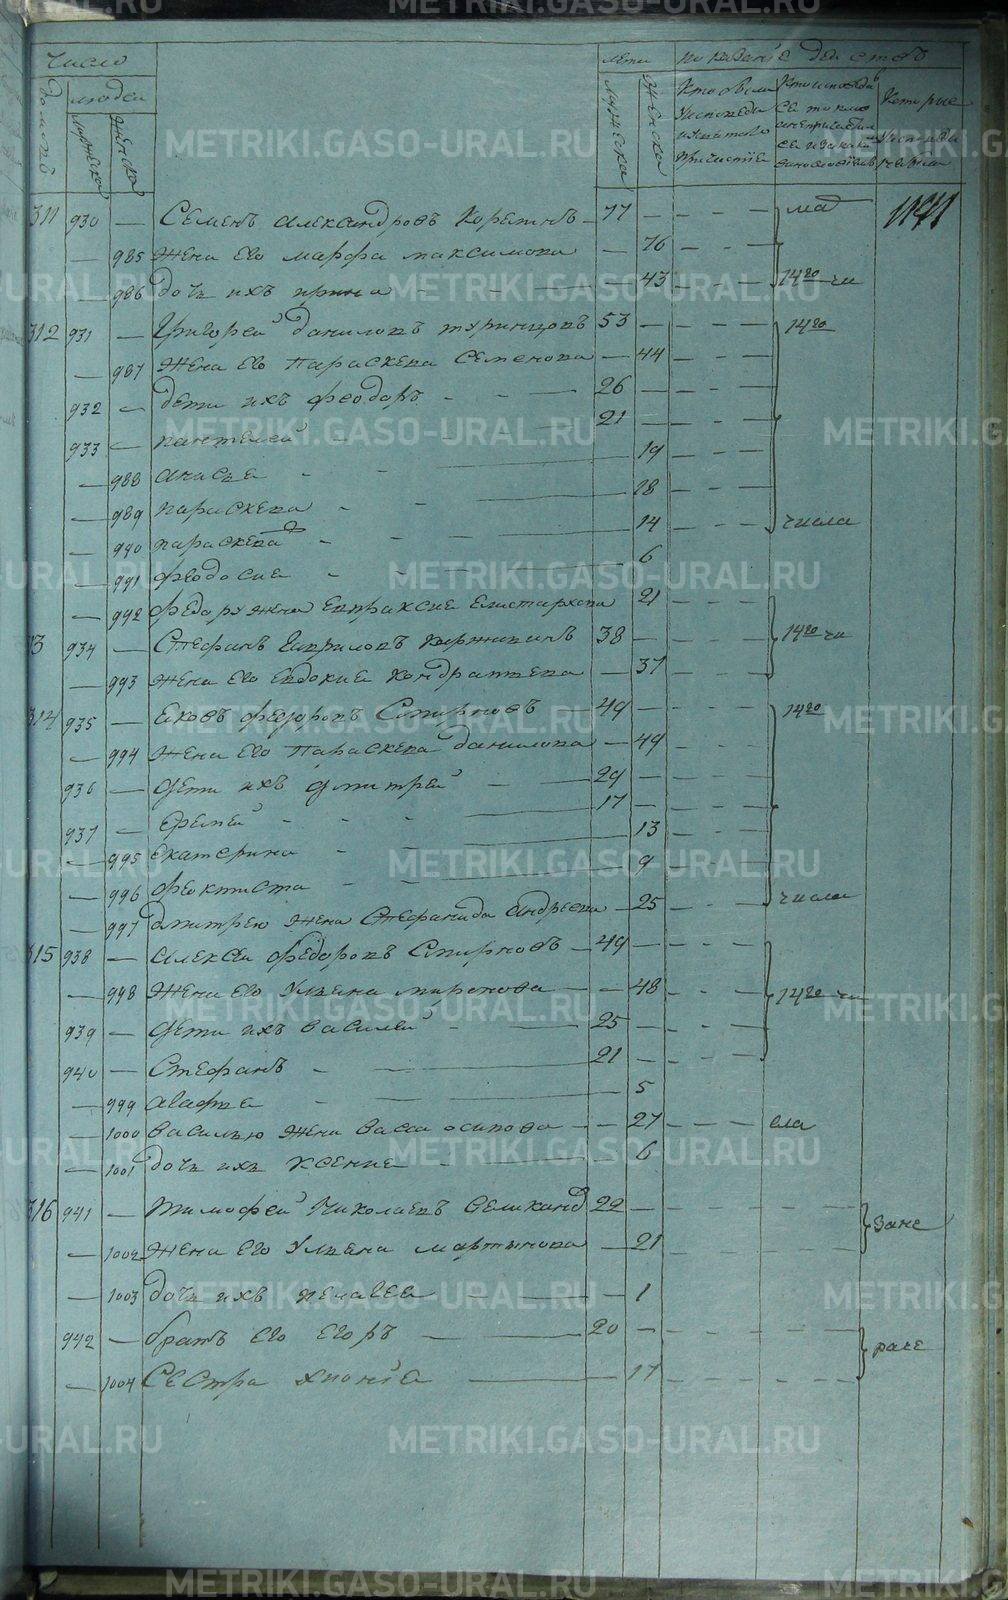 Число лета показание действ
домовъ людей мужеска женска мужеска женска
311 930 — Семенъ Александровъ 77 — маㅤ
— 985 жена его марфа максимова — 76
— 986 дочь ихъ ирина — 43 14го чи
312 931 — Григорей даниловъ 53 — 14го
— 987 жена его Параскева Семенова — 44
932 — дети ихъ феодоръ 26 —
933 — пантелей 21 —
— 988 анисья 19
— 989 параскева 18
— 990 параскева 14 числа
— 991 феодосиа 6
— 992 федору жена Евпраксиа Елистархова 21
13 934 — Стефанъ Гаврилов 38 — 14го чи
— 993 жена его Евдокиа Кондратьева — 37
314 935 — Яковъ федоровъ Смирновъ 49 — 14го
— 994 жена его Параскева данилова — 49
936 — дети ихъ дмитрей 29 —
937 — Еремей 17 —
— 995 екатерина 13
— 996 феоктиста 9
— 997 дмитрею жена Стефанида Андреева — 25 числа
315 938 — алексей федоровъ Смирновъ 49 —
— 998 жена его Ульяна миронова — 48 14го чи
939 — дети ихъ василей 25 —
940 — Стефанъ 21 —
— 999 агафья 5
— 1000 василью жена васса осипова — 27 сла
— 1001 дочь ихъ ксениа 6
316 941 — тимофей Николаевъ 22 — Зане
— 1002 жена его Ульяна мартынова — 21
— 1003 дочь ихъ пелагея — 1
942 — братъ его егоръ 20 —
— 1004 Сестра хиониа 17
METRIKI.GASO-URAL.RU